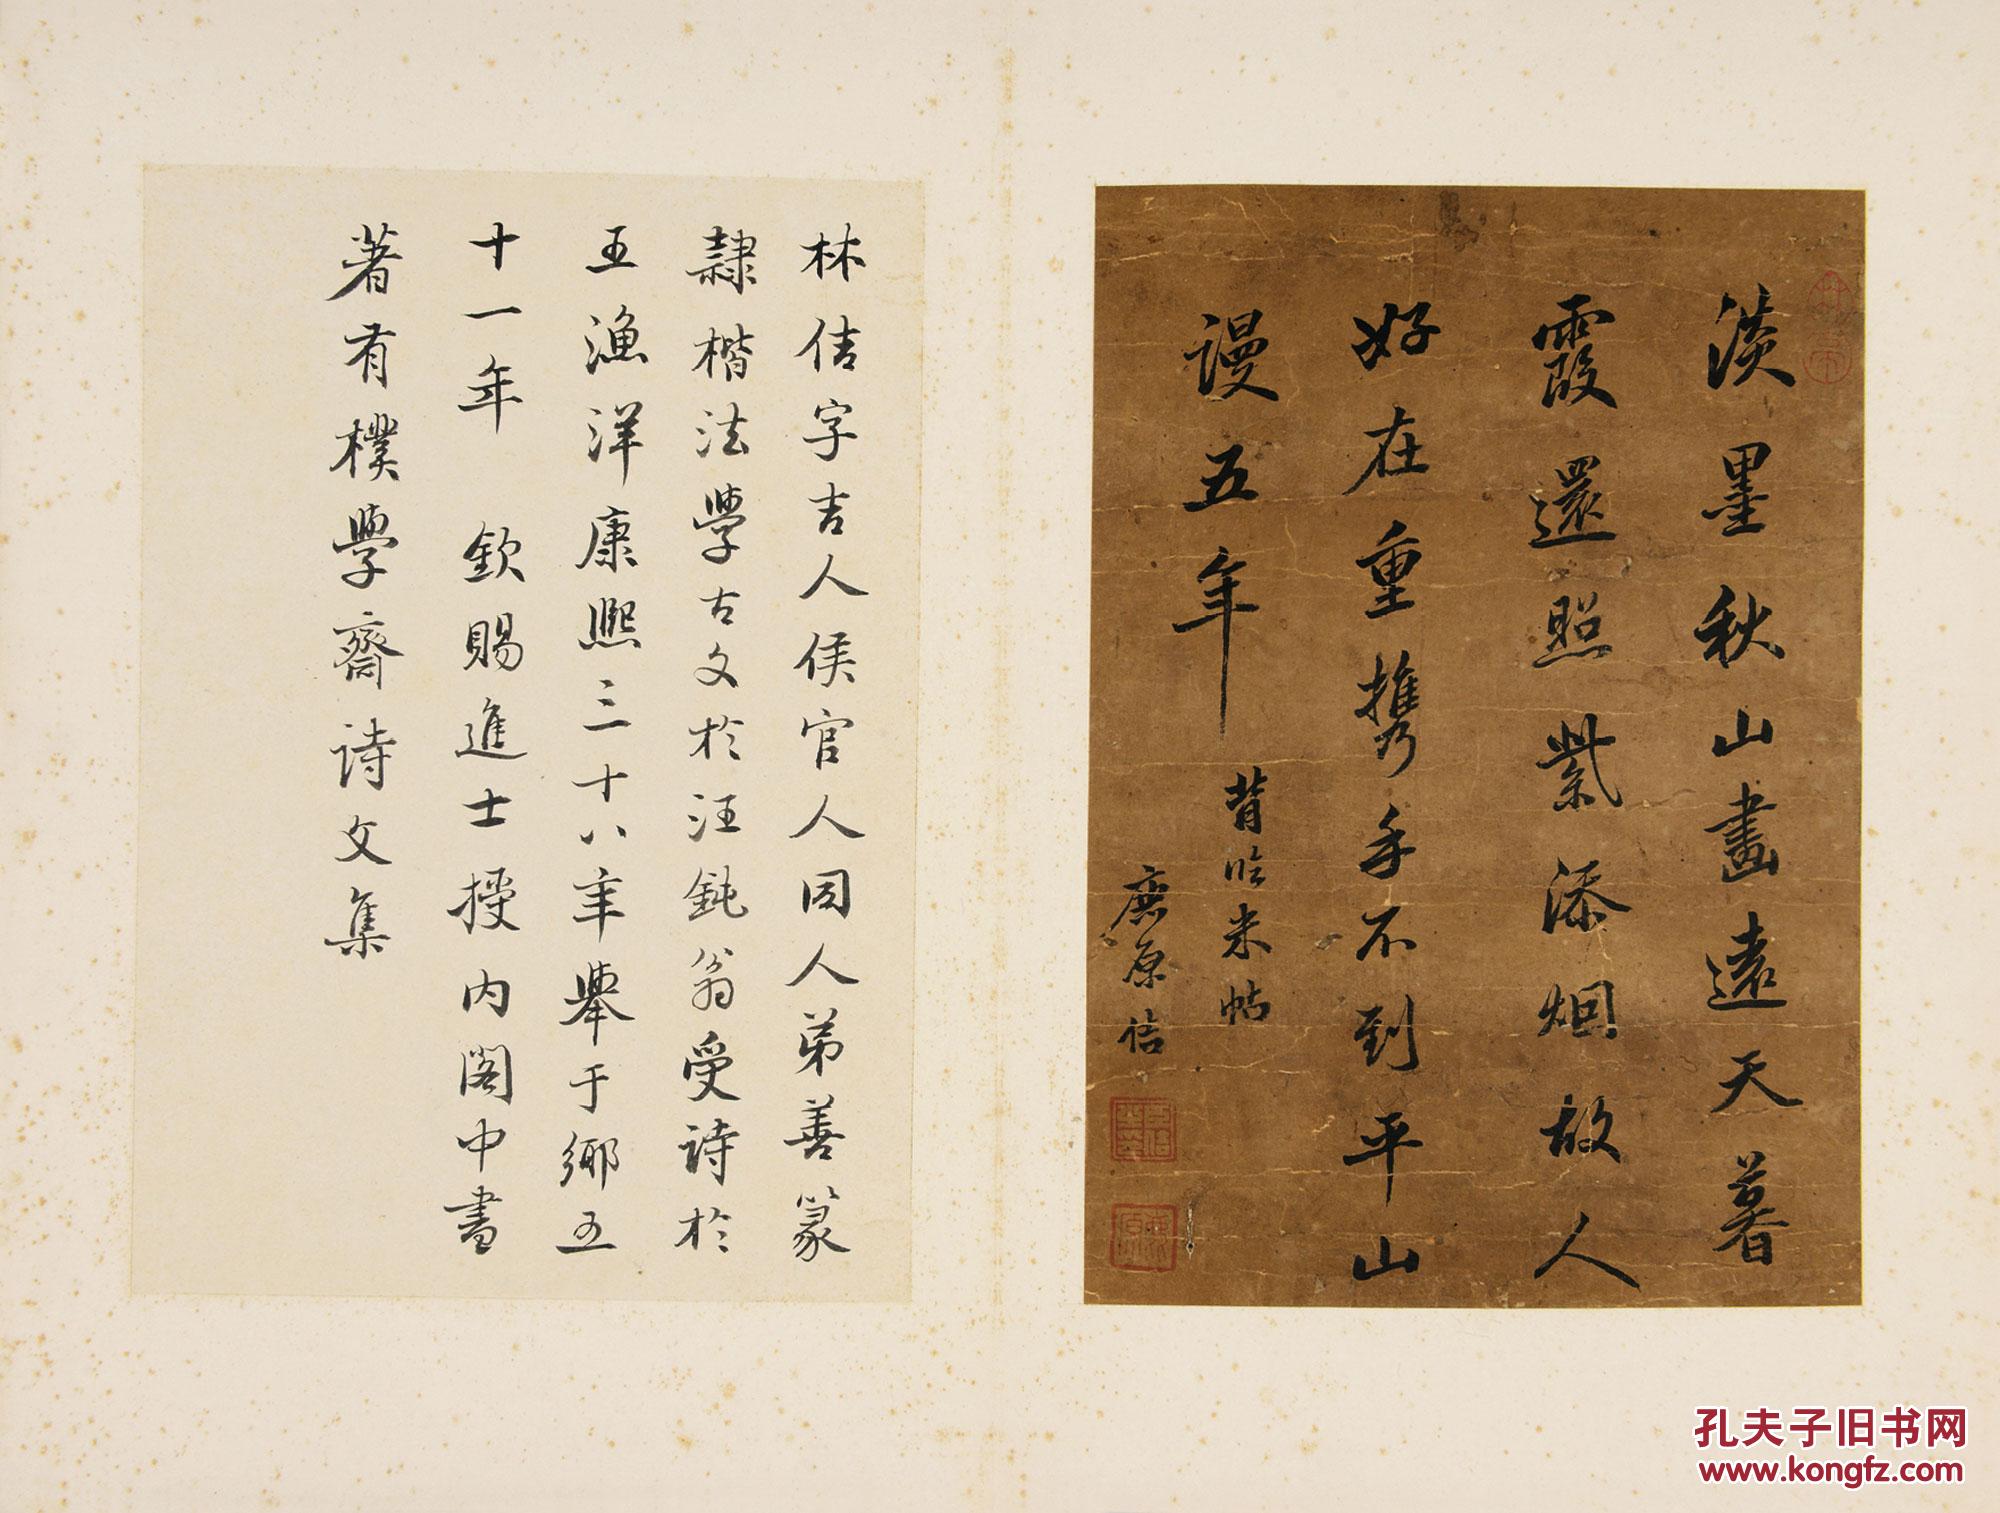 淡墨秋山畫遠天暮
霞還照紫添烟故人
好在重携手不到平山
謾五年
背临米帖
鹿原佶
林佶字吉人侯官人同人弟善篆
隷楷法學古文於汪鈍翁受詩於
王漁洋康熙三十八年舉于鄉五
十一年 欽賜進士授内閣中書
著有樸學齋詩文集
孔夫子旧书网
www.kongfz.com